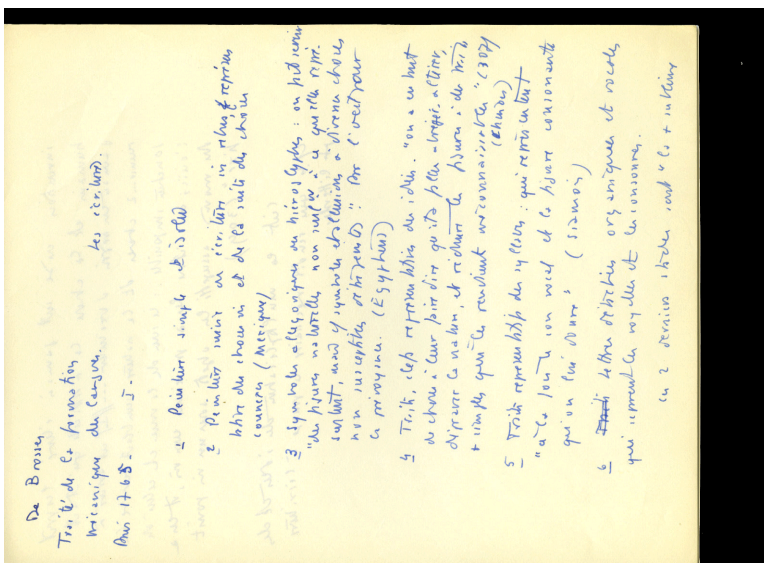 De Brosses
Traité de la formation
mécanique des langues.
Paris 1765 - I -
Les écritures.
1 Peinture simple et isolée
2 Peinture suivie ou écriture in rebus représen
tative des choses et de la suite des choses
connues (Mexique)
3 Symboles allégoriques ou hiéroglyphes : on peut
"des figures naturelles non seules à ce qu'elles repré-
sentent, mais symboles et allusions à diverses choses
non susceptibles d'être peintes" Par l'œil pour
la prévoyance. (Égyptiens)
4 Traits, clefs représentatives des idées. "on a en but
de choses à leur faire dire qu'il a fallu abréger, altérer,
dépraver la nature, et réduire les figures à des traits
+ simples qui les rendaient méconnaissables" (307)
(Chinois)
5 Traits représentatifs des syllabes : qui représentent
"à la fois le son vocal et la figure consonante
qu'on lui donne" (Siamois)
6 Lettres détachées organiques et vocales
qui expriment les voyelles et les consonnes.
Les 2 derniers stades sont